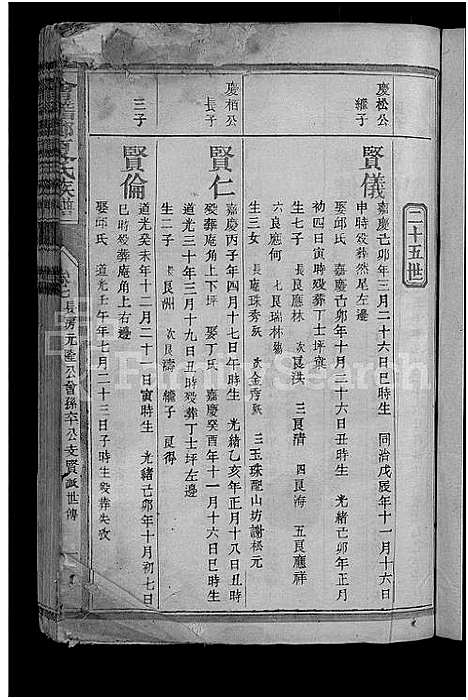 二十五世
慶松公
繼子
賢儀
嘉慶己卯年三月二十六日巳時生 同治戊辰年十一月十六日
申時歿葬然尾左邊
娶邱氏 嘉慶己卯年十月二十六日丑時生 光緒己卯年正月
初四日寅時歿葬丁士坪
生七子 長良應林 次良洪 三良清 四良海 五良應祥
六良應何 七良瑞林殤
生三女 長庵珠秀 次金秀 三玉珠配山坊謝松元
慶栢公
長子
賢仁
嘉慶丙子年四月十七日午時生 光緒乙亥年正月十八日丑時
歿葬庵角上下坪 娶丁氏 嘉慶癸酉年十一月十六日巳時生
道光三十年三月十九日丑時歿葬丁士坪左邊
生二子 長良洲 次良濤 繼子 良得
三子
賢倫
道光癸未年十二月二十一日寅時生 光緒己卯年十月初七日
巳時歿葬庵角上右邊
娶邱氏 道光壬午年七月二十三日子時生歿葬失攷
氏族譜
長房元公會孫卒公支賢派世傳
FamilySearch